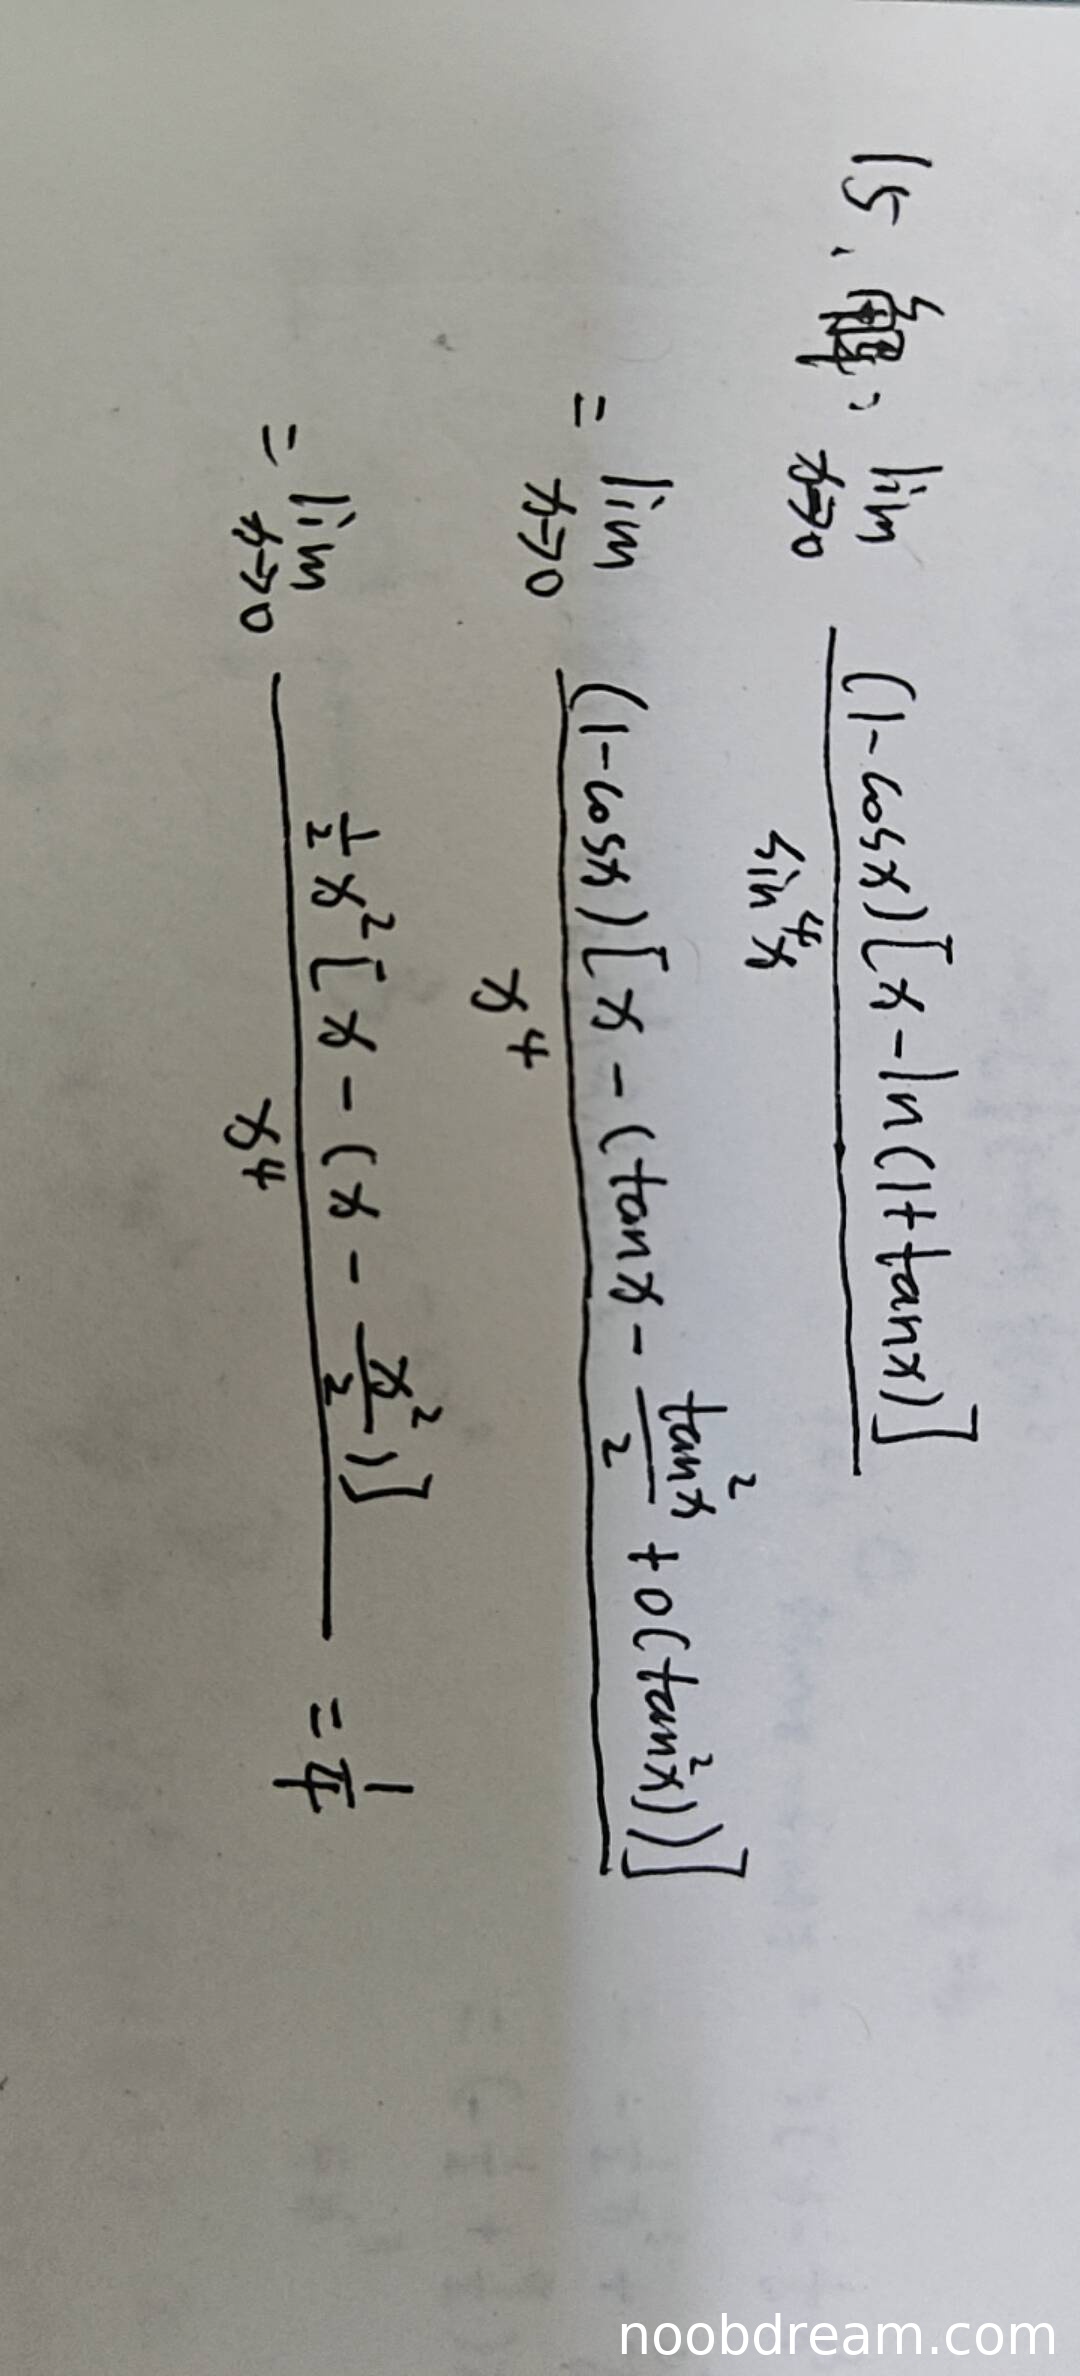 15、解、lim x→0 (1-cosx)[x-ln(1+tanx)] / sin⁴x
= lim x→0 (1-cosx)[x-(tanx - tan²x/2 + o(tan²x))] / x⁴
= lim x→0 ½x²[x-(x - x²/2)] / x⁴ = 1/4
noobdream.com